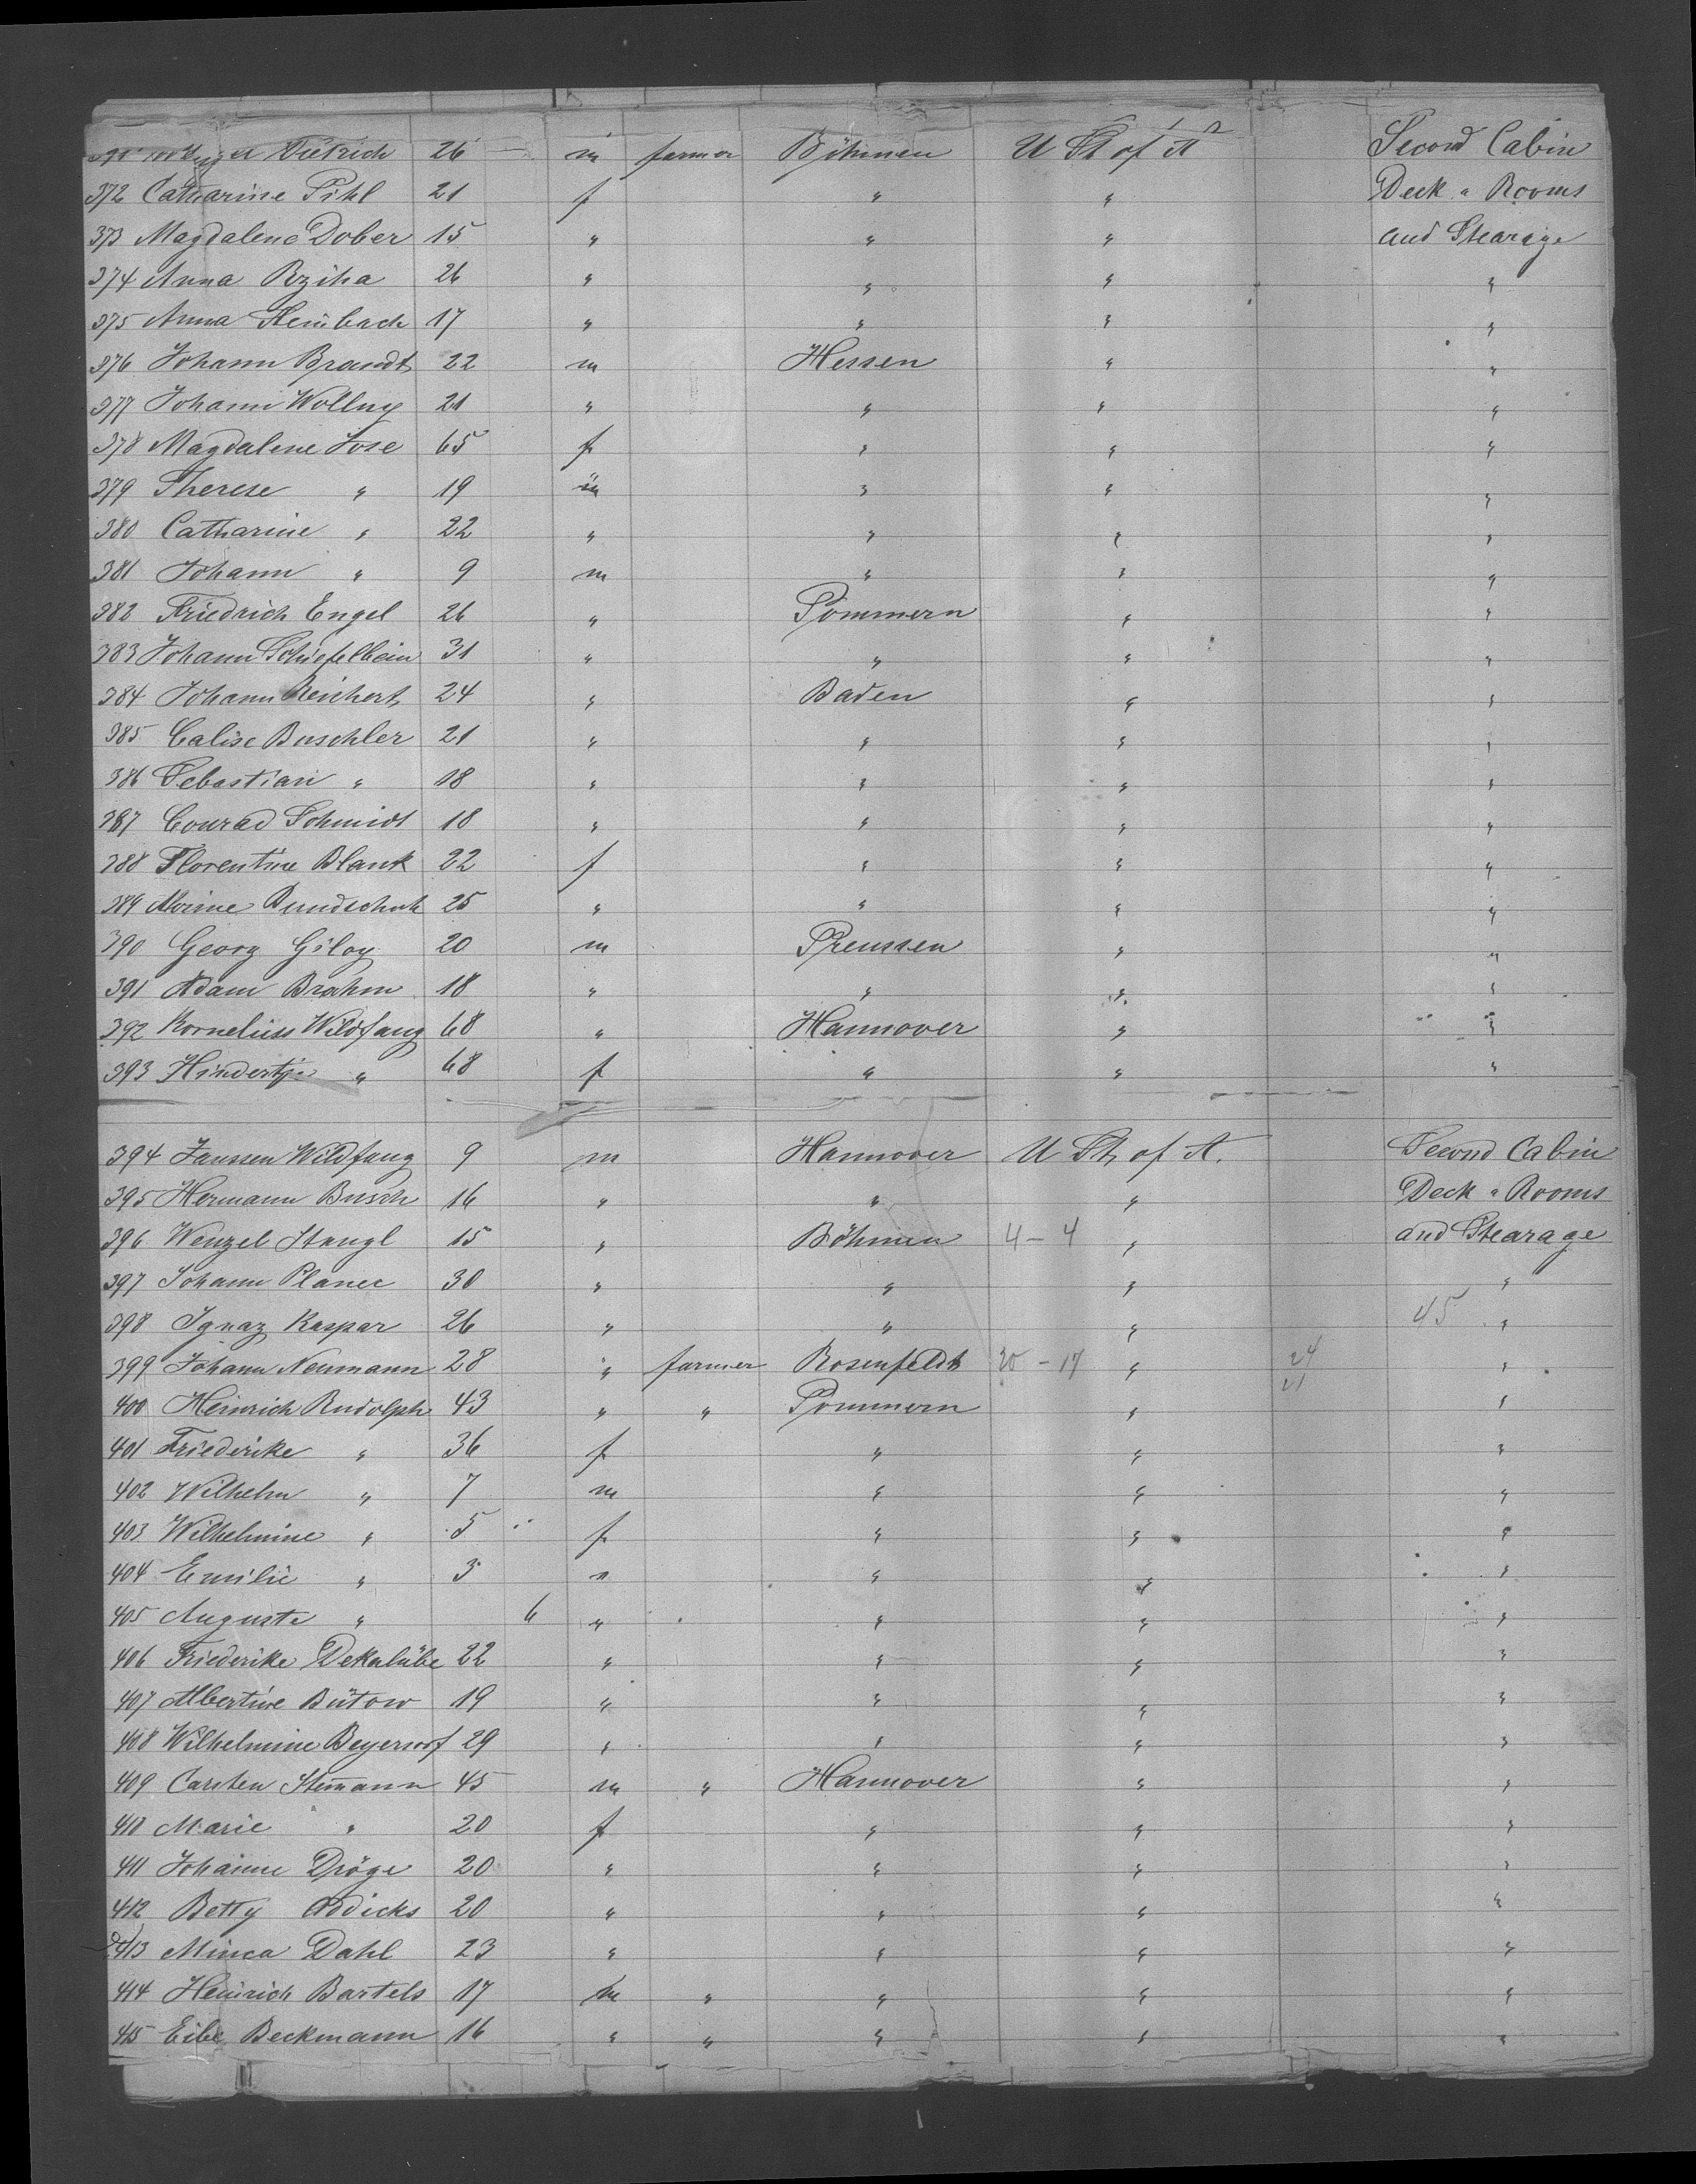 Dietrich 26 m farmer Böhmen U St of A Second Cabin
372 Catharine Pihl 21 f " " Deck " Rooms
373 Magdalene Dober 15 " " " and Stearage
374 Anna Rziha 26 " " " "
375 Anna Steinbach 17 " " " "
376 Johann Brandt 22 m Hessen " "
377 Johann Wollny 21 " " " "
378 Magdalene Jose 65 f " " "
379 Therese " 19 m " " "
380 Catharine " 22 " " " "
381 Johann " 9 m " " "
382 Friedrich Engel 26 " Pommern " "
383 Johann Schiefelbein 31 " " " "
384 Johann Reichert 24 " Baden " "
385 Calise Buschler 21 " " " "
386 Sebastian " 18 " " " "
387 Conrad Schmidt 18 " " " "
388 Florentine Blank 22 f " " "
389 Bundschuh 25 " " " "
390 Georg Giloy 20 m Preussen " "
391 Adam Brahm 18 " " " "
392 Kornelius Wildfang 68 " Hannover " "
393 Hindertje " 68 f " " "
394 Janssen Wildfang 9 m Hannover U St. of A. Second Cabin
395 Hermann Busch 16 " " " Deck " Rooms
396 Wenzel Stangl 15 " Böhmen 4-4 " and Stearage
397 Johann Planec 30 " " " "
398 Ignaz Kaspar 26 " " " 45 "
399 Johann Neumann 28 " farmer Rosenfeldt 20-17 " 24 "
400 Heinrich Rudolph 43 " " Pommern " "
401 Friederike " 36 f " " "
402 Wilhelm " 7 m " " "
403 Wilhelmine " 5 f " " "
404 Emilie " 3 " " " "
405 Auguste " 6 " " " "
406 Friederike 22 " " " "
407 Albertine Bütow 19 " " " "
408 Wilhelmine Beyersdorf 29 " " " "
409 Carsten Stemann 45 m " Hannover " "
410 Marie " 20 f " " "
411 Johanne Dröge 20 " " " "
412 Betty Addicks 20 " " " "
413 Minca Dahl 23 " " " "
414 Heinrich Bartels 17 m " " " "
415 Eibe Beckmann 16 " " " " "